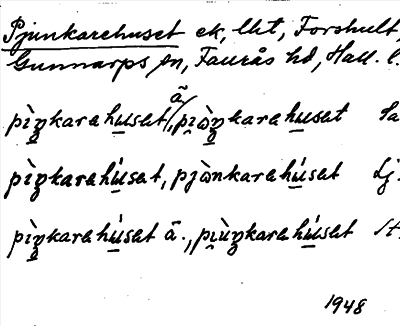 Pjunkarehuset ek, lht, Forshult,
Gunnarps sn, Faurås hd, Hall. l.
pìŋkarahuset,/ä pi̯òŋkarahuset Sa
pìŋkarahúset, pjònkarahúset Lj.
pìŋkarahúset ä., pi̯ùŋkarahúset St.
1948